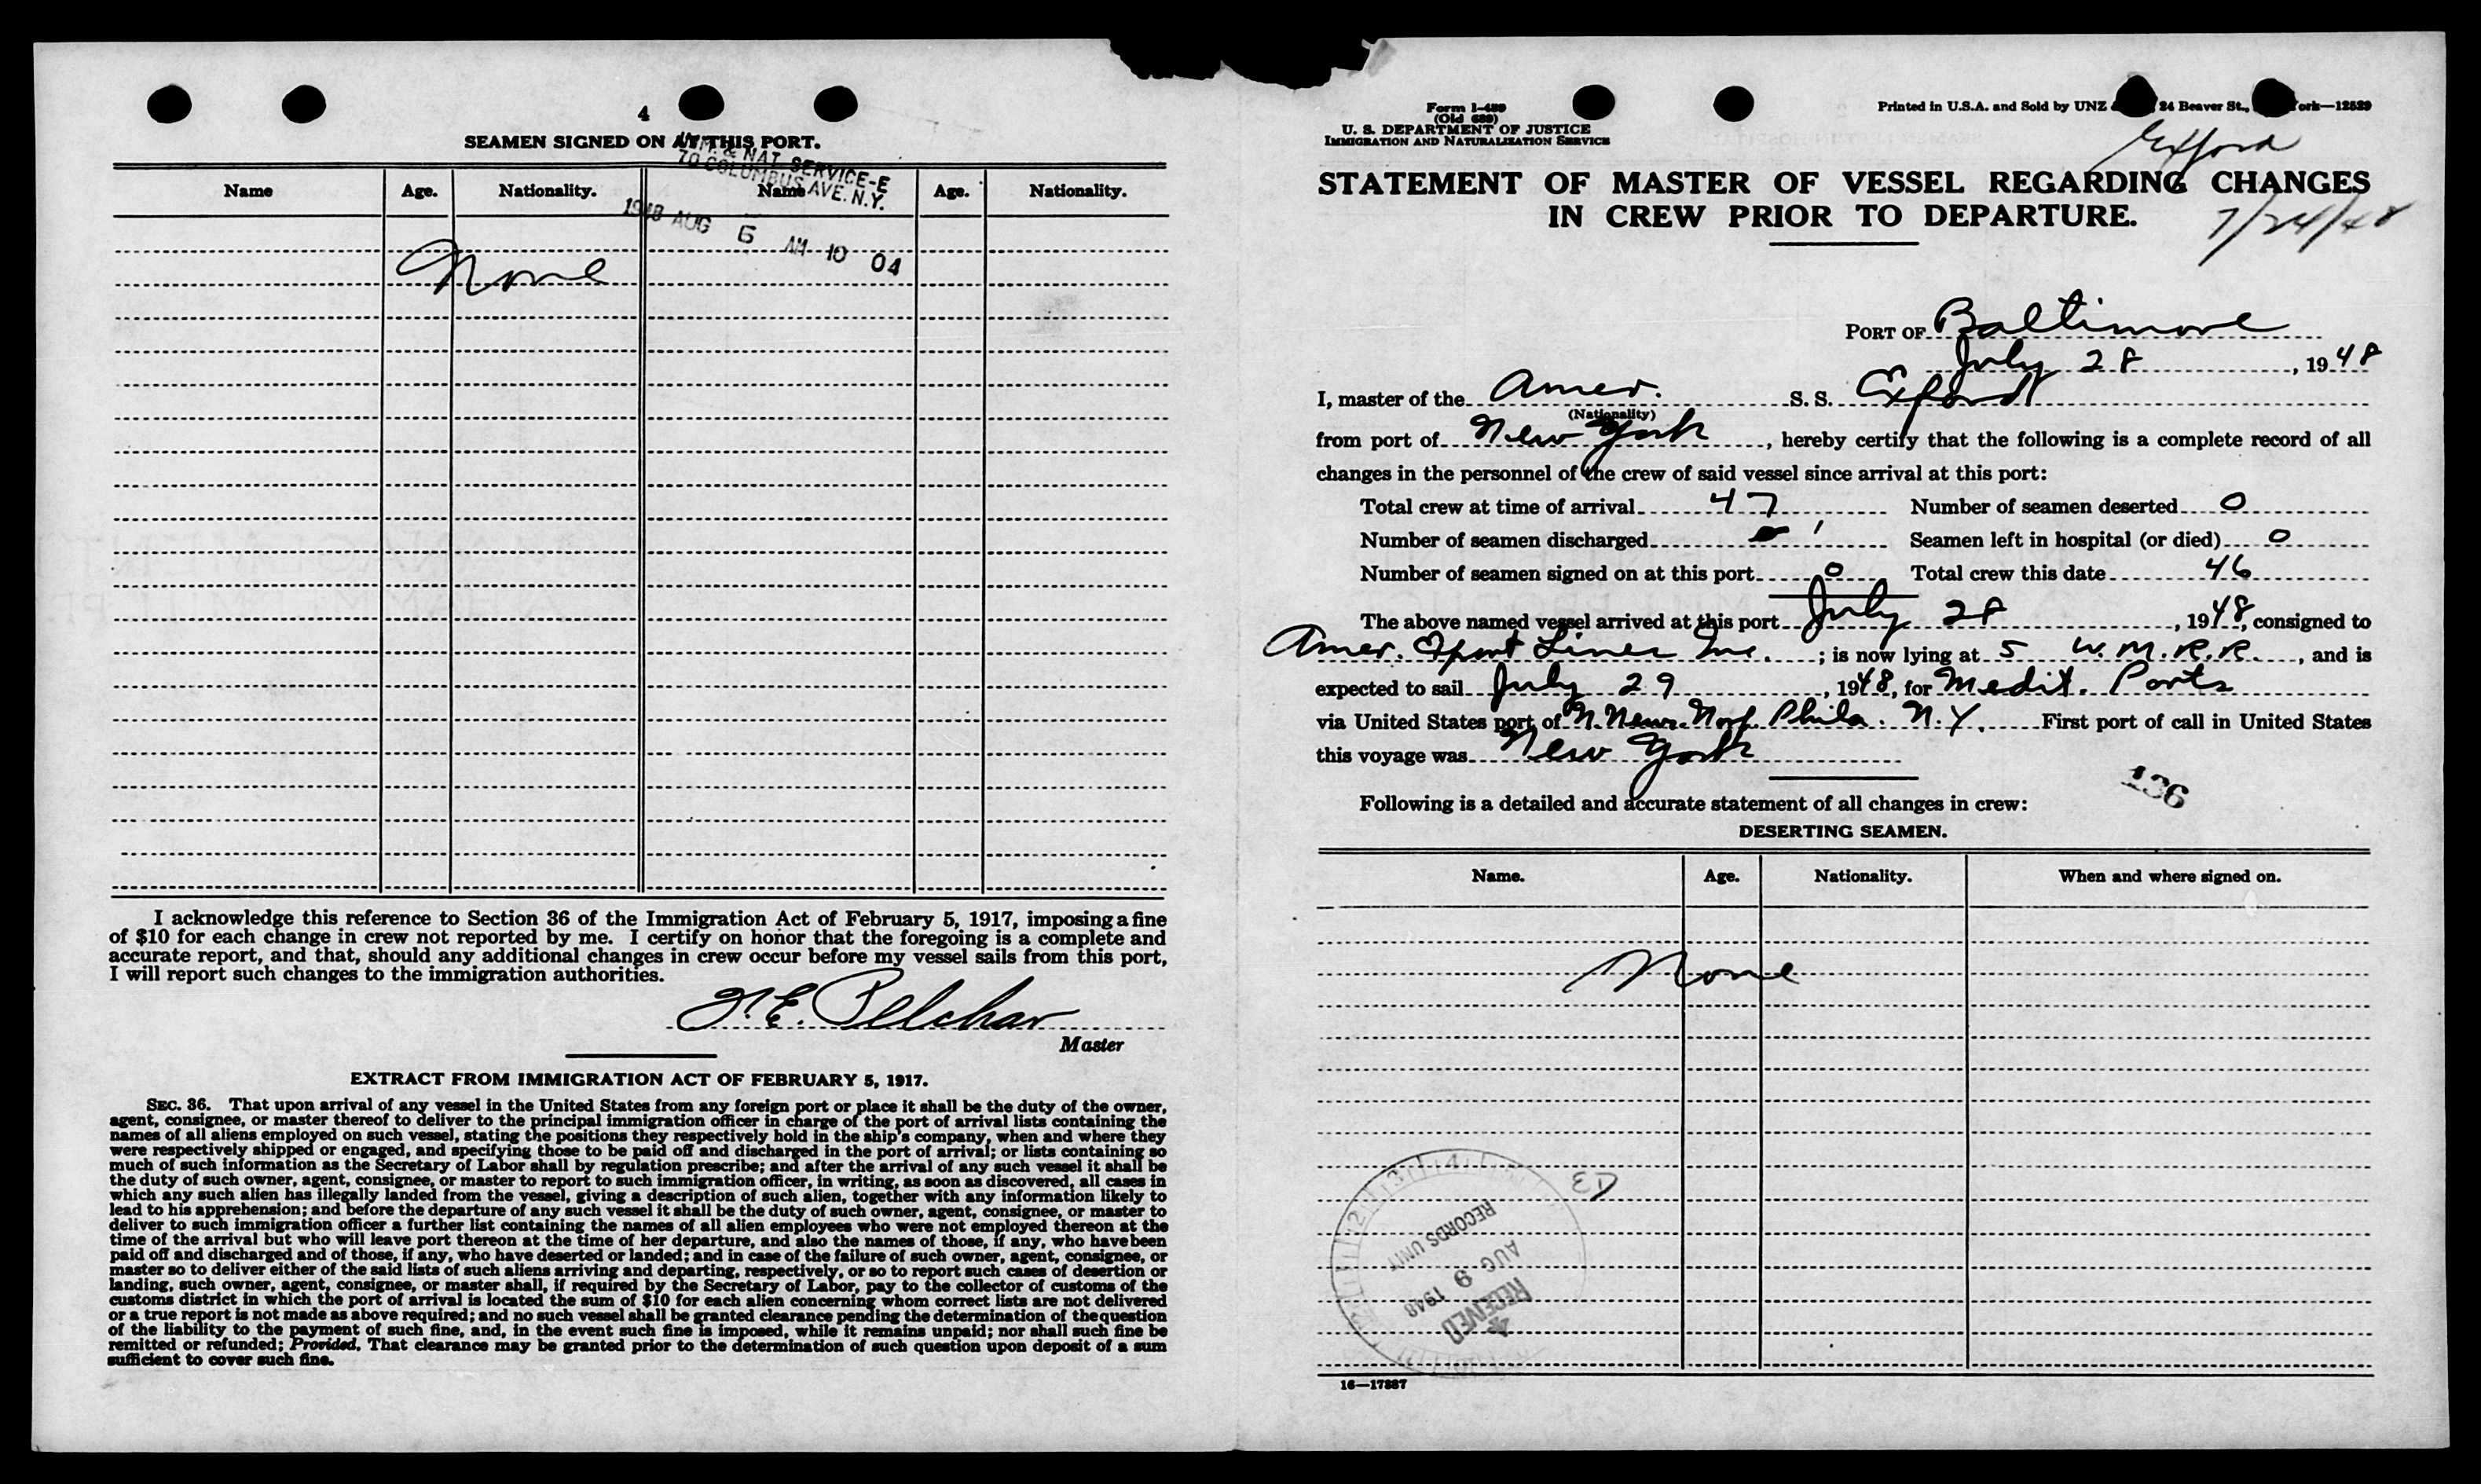 4
SEAMEN SIGNED ON AT THIS PORT.
IMM. & NAT. SERVICE-E
70 COLUMBUS AVE. N.Y.
1948 AUG 6 AM 10 04
Name Age. Nationality. Name Age. Nationality.
None
I acknowledge this reference to Section 36 of the Immigration Act of February 5, 1917, imposing a fine
of $10 for each change in crew not reported by me. I certify on honor that the foregoing is a complete and
accurate report, and that, should any additional changes in crew occur before my vessel sails from this port,
I will report such changes to the immigration authorities.
Master
EXTRACT FROM IMMIGRATION ACT OF FEBRUARY 5, 1917.
SEC. 36. That upon arrival of any vessel in the United States from any foreign port or place it shall be the duty of the owner,
agent, consignee, or master thereof to deliver to the principal immigration officer in charge of the port of arrival lists containing the
names of all aliens employed on such vessel, stating the positions they respectively hold in the ship's company, when and where they
were respectively shipped or engaged, and specifying those to be paid off and discharged in the port of arrival; or lists containing so
much of such information as the Secretary of Labor shall by regulation prescribe; and after the arrival of any such vessel it shall be
the duty of such owner, agent, consignee, or master to report to such immigration officer, in writing, as soon as discovered, all cases in
which any such alien has illegally landed from the vessel, giving a description of such alien, together with any information likely to
lead to his apprehension; and before the departure of any such vessel it shall be the duty of such owner, agent, consignee, or master to
deliver to such immigration officer a further list containing the names of all alien employees who were not employed thereon at the
time of the arrival but who will leave port thereon at the time of her departure, and also the names of those, if any, who have been
paid off and discharged and of those, if any, who have deserted or landed; and in case of the failure of such owner, agent, consignee, or
master so to deliver either of the said lists of such aliens arriving and departing, respectively, or so to report such cases of desertion or
landing, such owner, agent, consignee, or master shall, if required by the Secretary of Labor, pay to the collector of customs of the
customs district in which the port of arrival is located the sum of $10 for each alien concerning whom correct lists are not delivered
or a true report is not made as above required; and no such vessel shall be granted clearance pending the determination of the question
of the liability to the payment of such fine, and, in the event such fine is imposed, while it remains unpaid; nor shall such fine be
remitted or refunded; Provided, That clearance may be granted prior to the determination of such question upon deposit of a sum
sufficient to cover such fine.
Form I-489
(Old 689)
U. S. DEPARTMENT OF JUSTICE
IMMIGRATION AND NATURALIZATION SERVICE
Printed in U.S.A. and Sold by UNZ 24 Beaver St., ork—12529
Exford
7/24/48
STATEMENT OF MASTER OF VESSEL REGARDING CHANGES
IN CREW PRIOR TO DEPARTURE.
PORT OF Baltimore
July 28, 1948
I, master of the Amer. S. S. Exford
(Nationality)
from port of New York, hereby certify that the following is a complete record of all
changes in the personnel of the crew of said vessel since arrival at this port:
Total crew at time of arrival 47 Number of seamen deserted 0
Number of seamen discharged 1 Seamen left in hospital (or died) 0
Number of seamen signed on at this port 0 Total crew this date 46
The above named vessel arrived at this port July 28, 1948, consigned to
Amer. Export Lines Inc.; is now lying at 5 W.M.R.R., and is
expected to sail July 29, 1948, for Medit. Ports
via United States port of N. News. Norf. Phila. N.Y. First port of call in United States
this voyage was New York
136
Following is a detailed and accurate statement of all changes in crew:
DESERTING SEAMEN.
Name. Age. Nationality. When and where signed on.
None
ED
RECEIVED
AUG 9 1948
RECORDS UNIT
16—17387